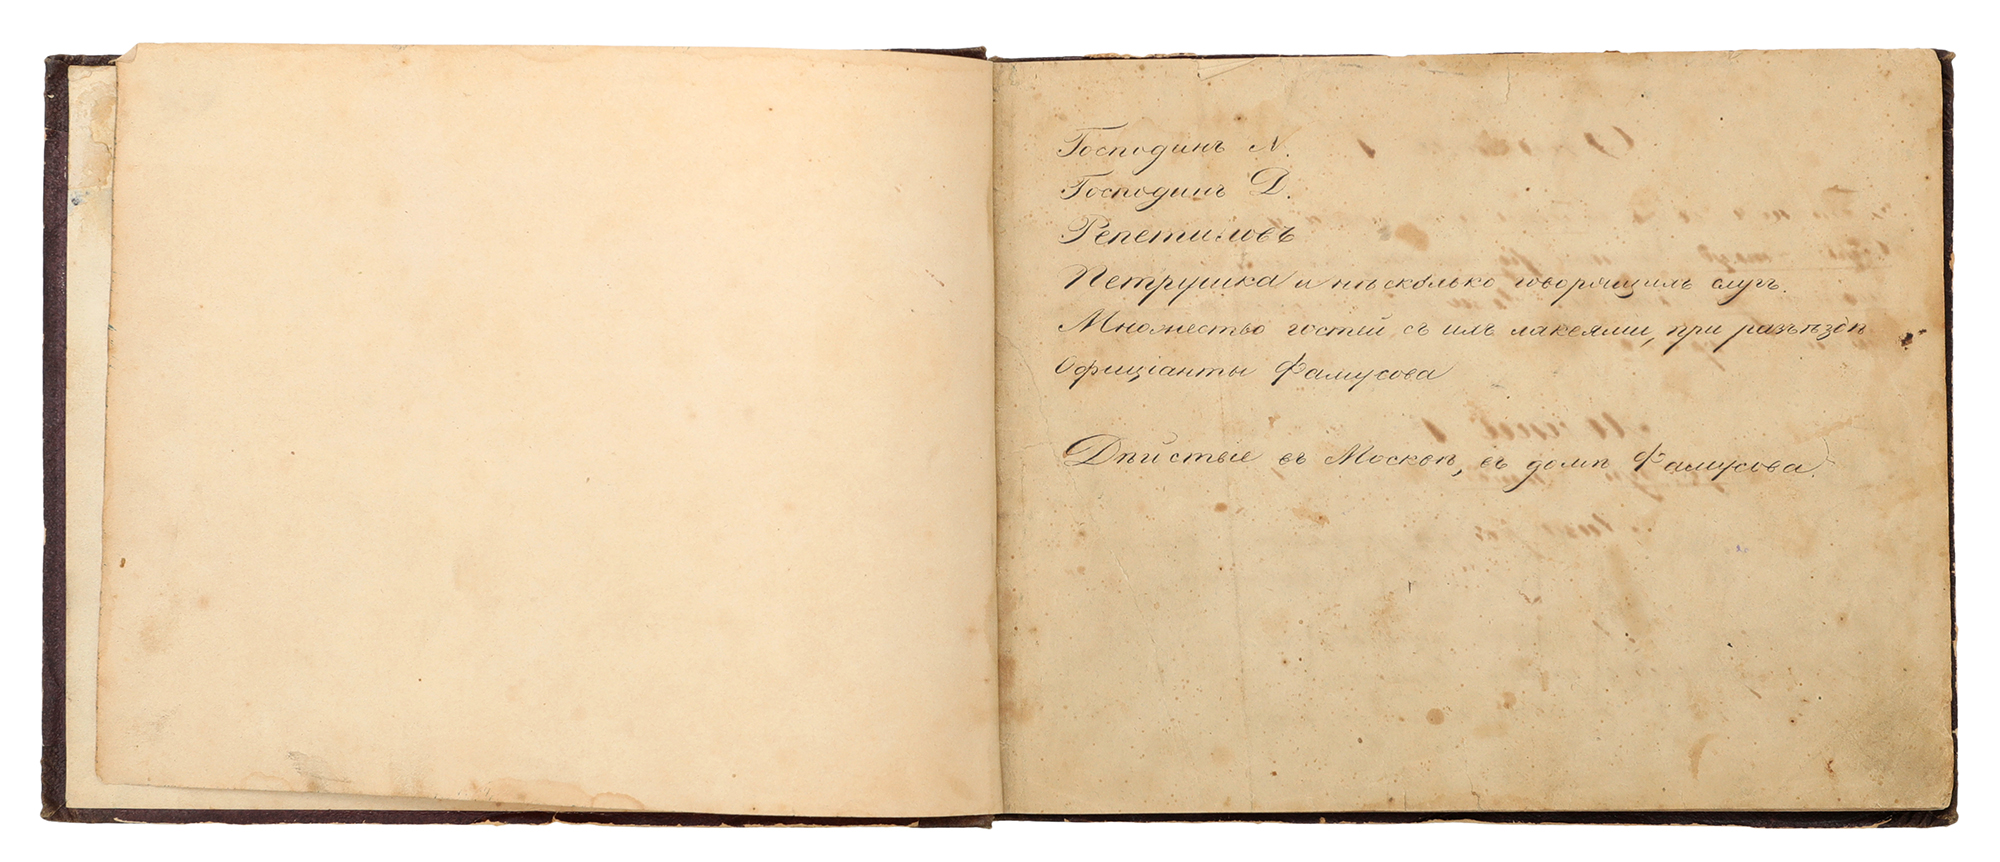 Господинъ N.
Господинъ D.
Репетиловъ
Петрушка и нѣсколько говорящихъ слугъ.
Множество гостей съ ихъ лакеями, при разъѣздѣ
Официанты Фамусова
Дѣйствіе въ Москвѣ, въ домѣ Фамусова.